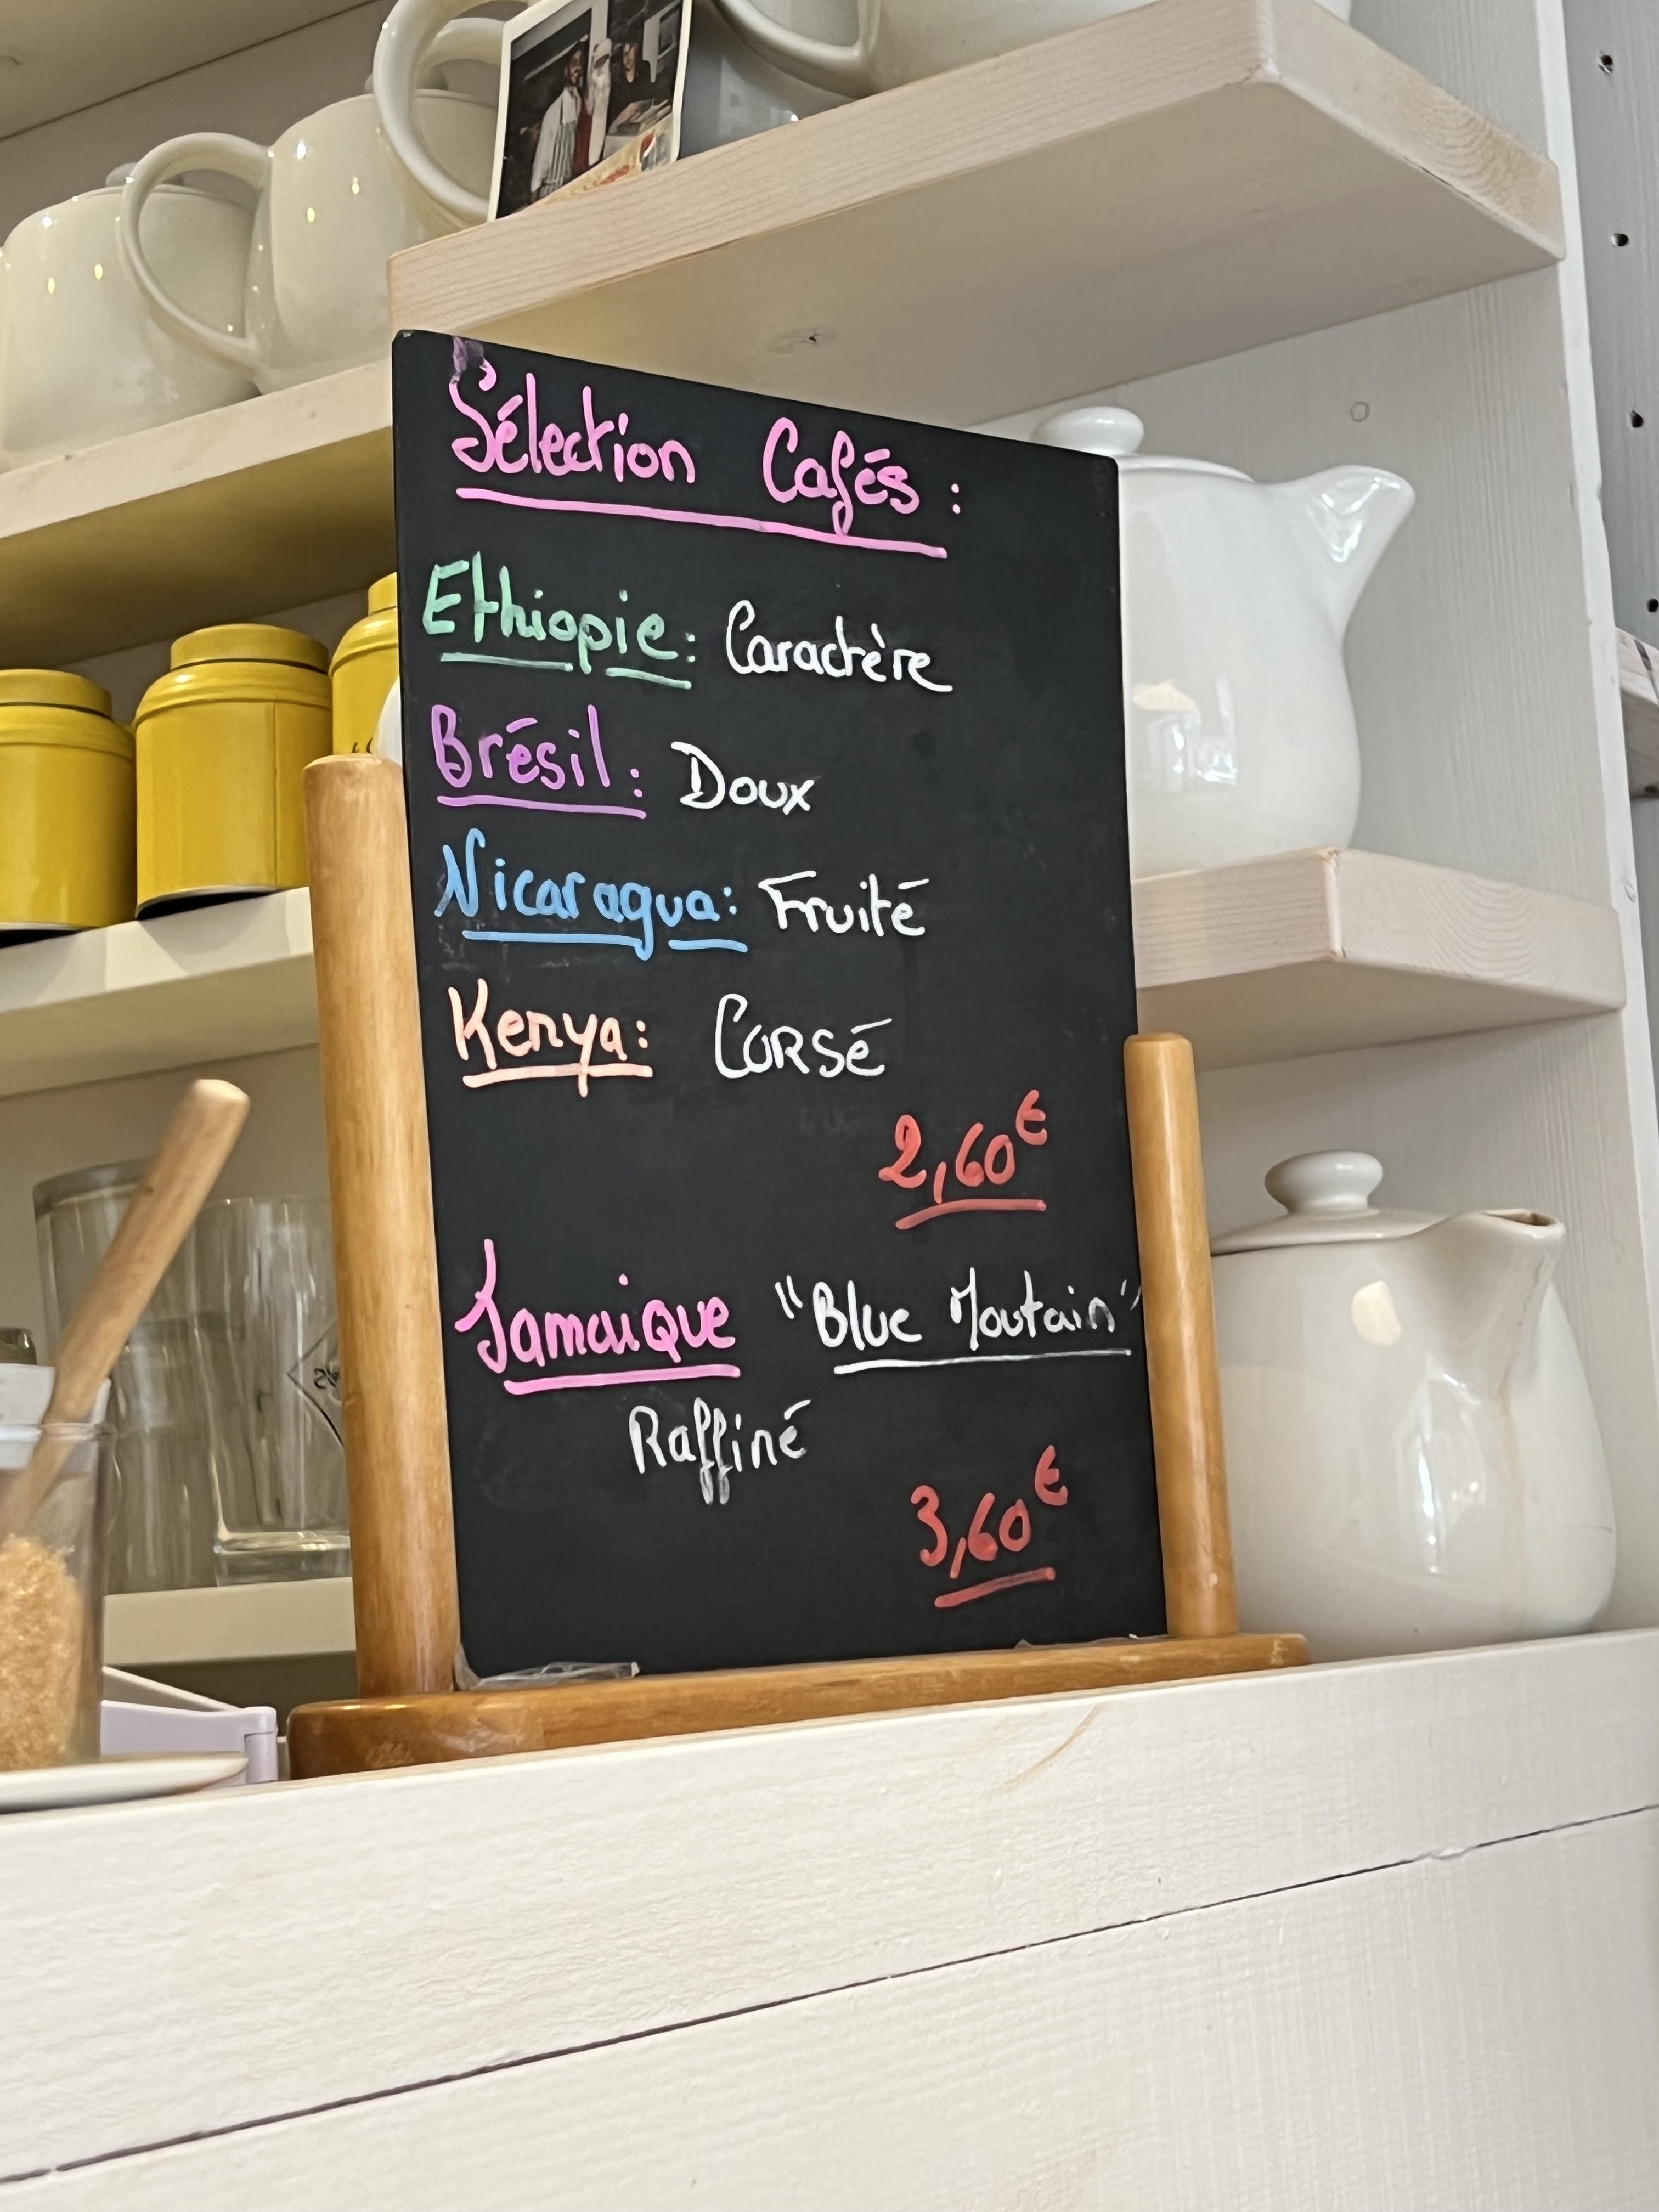 Sélection Cafés :
Ethiopie : Caractère
Brésil : Doux
Nicaragua : Fruité
Kenya : CORSé
2,60€
Jamaique "Blue Moutain"
Raffiné
3,60€